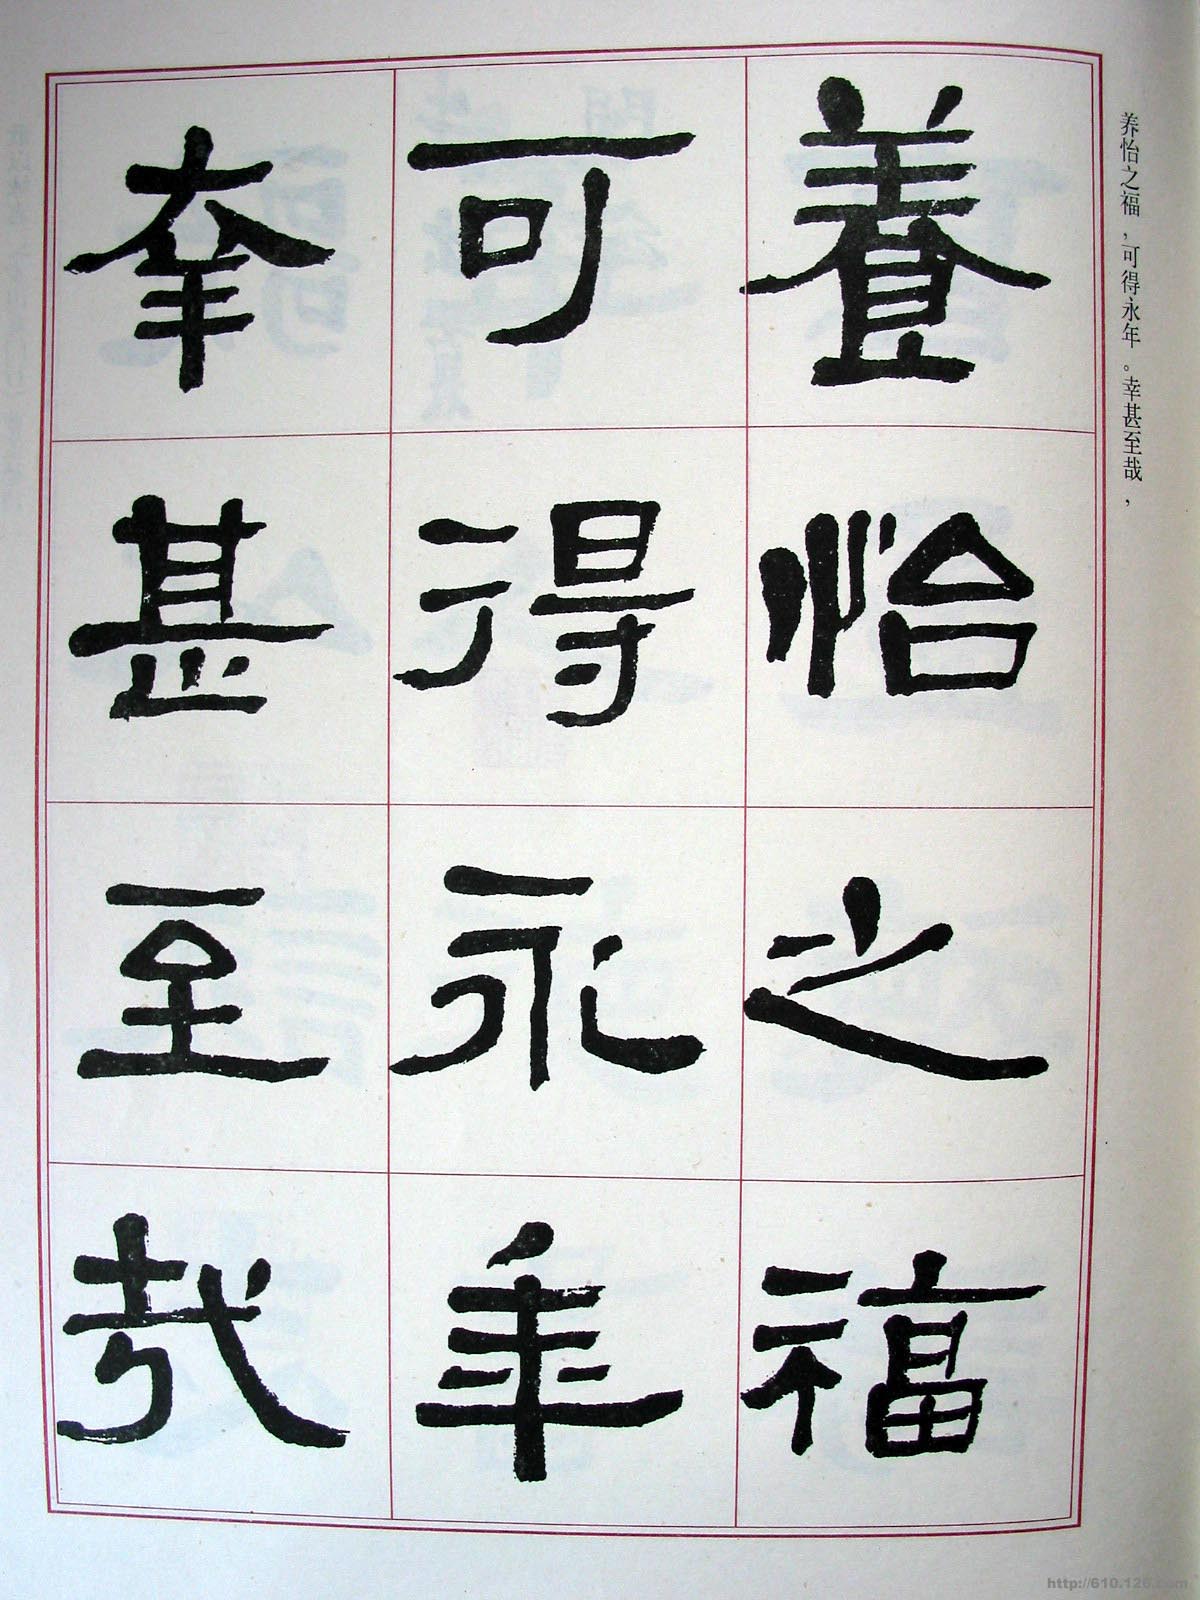 養怡之福
可得永年
幸甚至哉
养怡之福，可得永年。幸甚至哉，
http://610.126.com